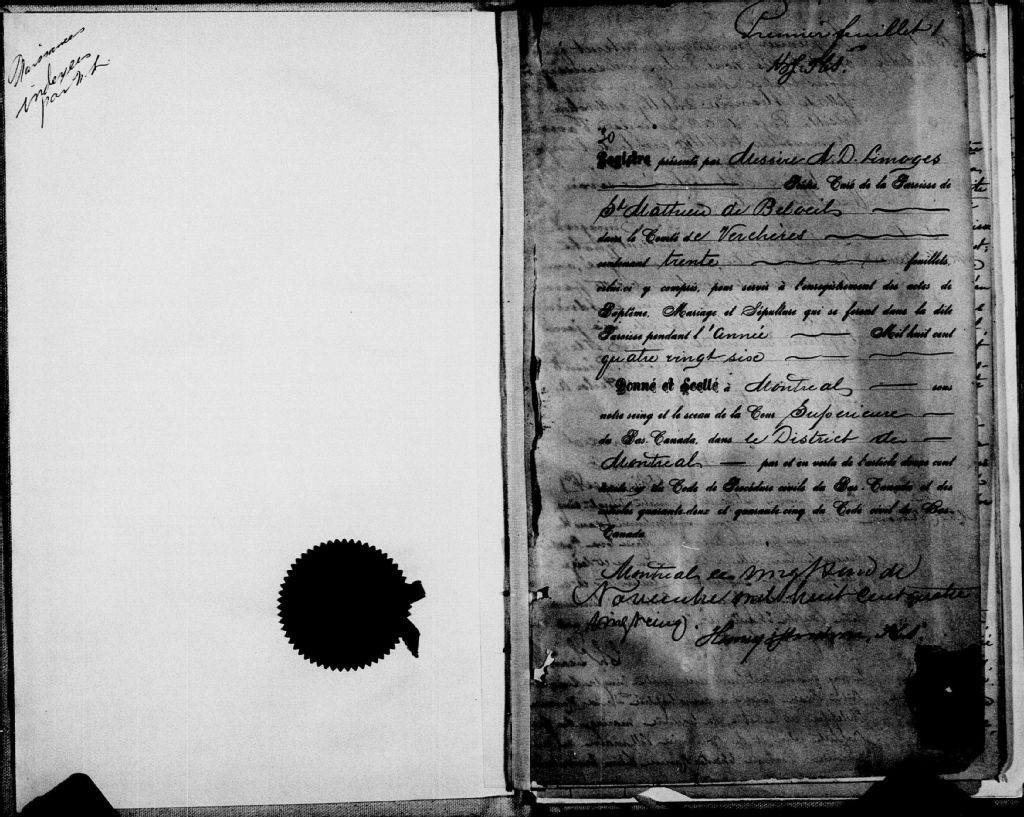 indexées
par
Premier feuillet 1
30
Registre présenté par Messire A. D. Limoges
Ptre. Curé de la Paroisse de
St Mathieu de Beloeil
dans le Comté de Verchères
contenant trente feuillets,
celui-ci y compris, pour servir à l'enregistrement des actes de
Baptême, Mariage et Sépulture qui se feront dans la dite
Paroisse pendant l'année Mil huit cent
quatre vingt six
Donné et Scellé à Montreal sous
notre seing et le sceau de la Cour Superieure
du Bas-Canada, dans le District de
Montreal par et en vertu de l'article douze cent
du Code de Procédure civile du Bas-Canada et des
articles quarante-deux et quarante-cinq du Code civil du Bas-
Canada
Montreal ce vingt deux de
Novembre mil huit cent quatre
vingt cinq